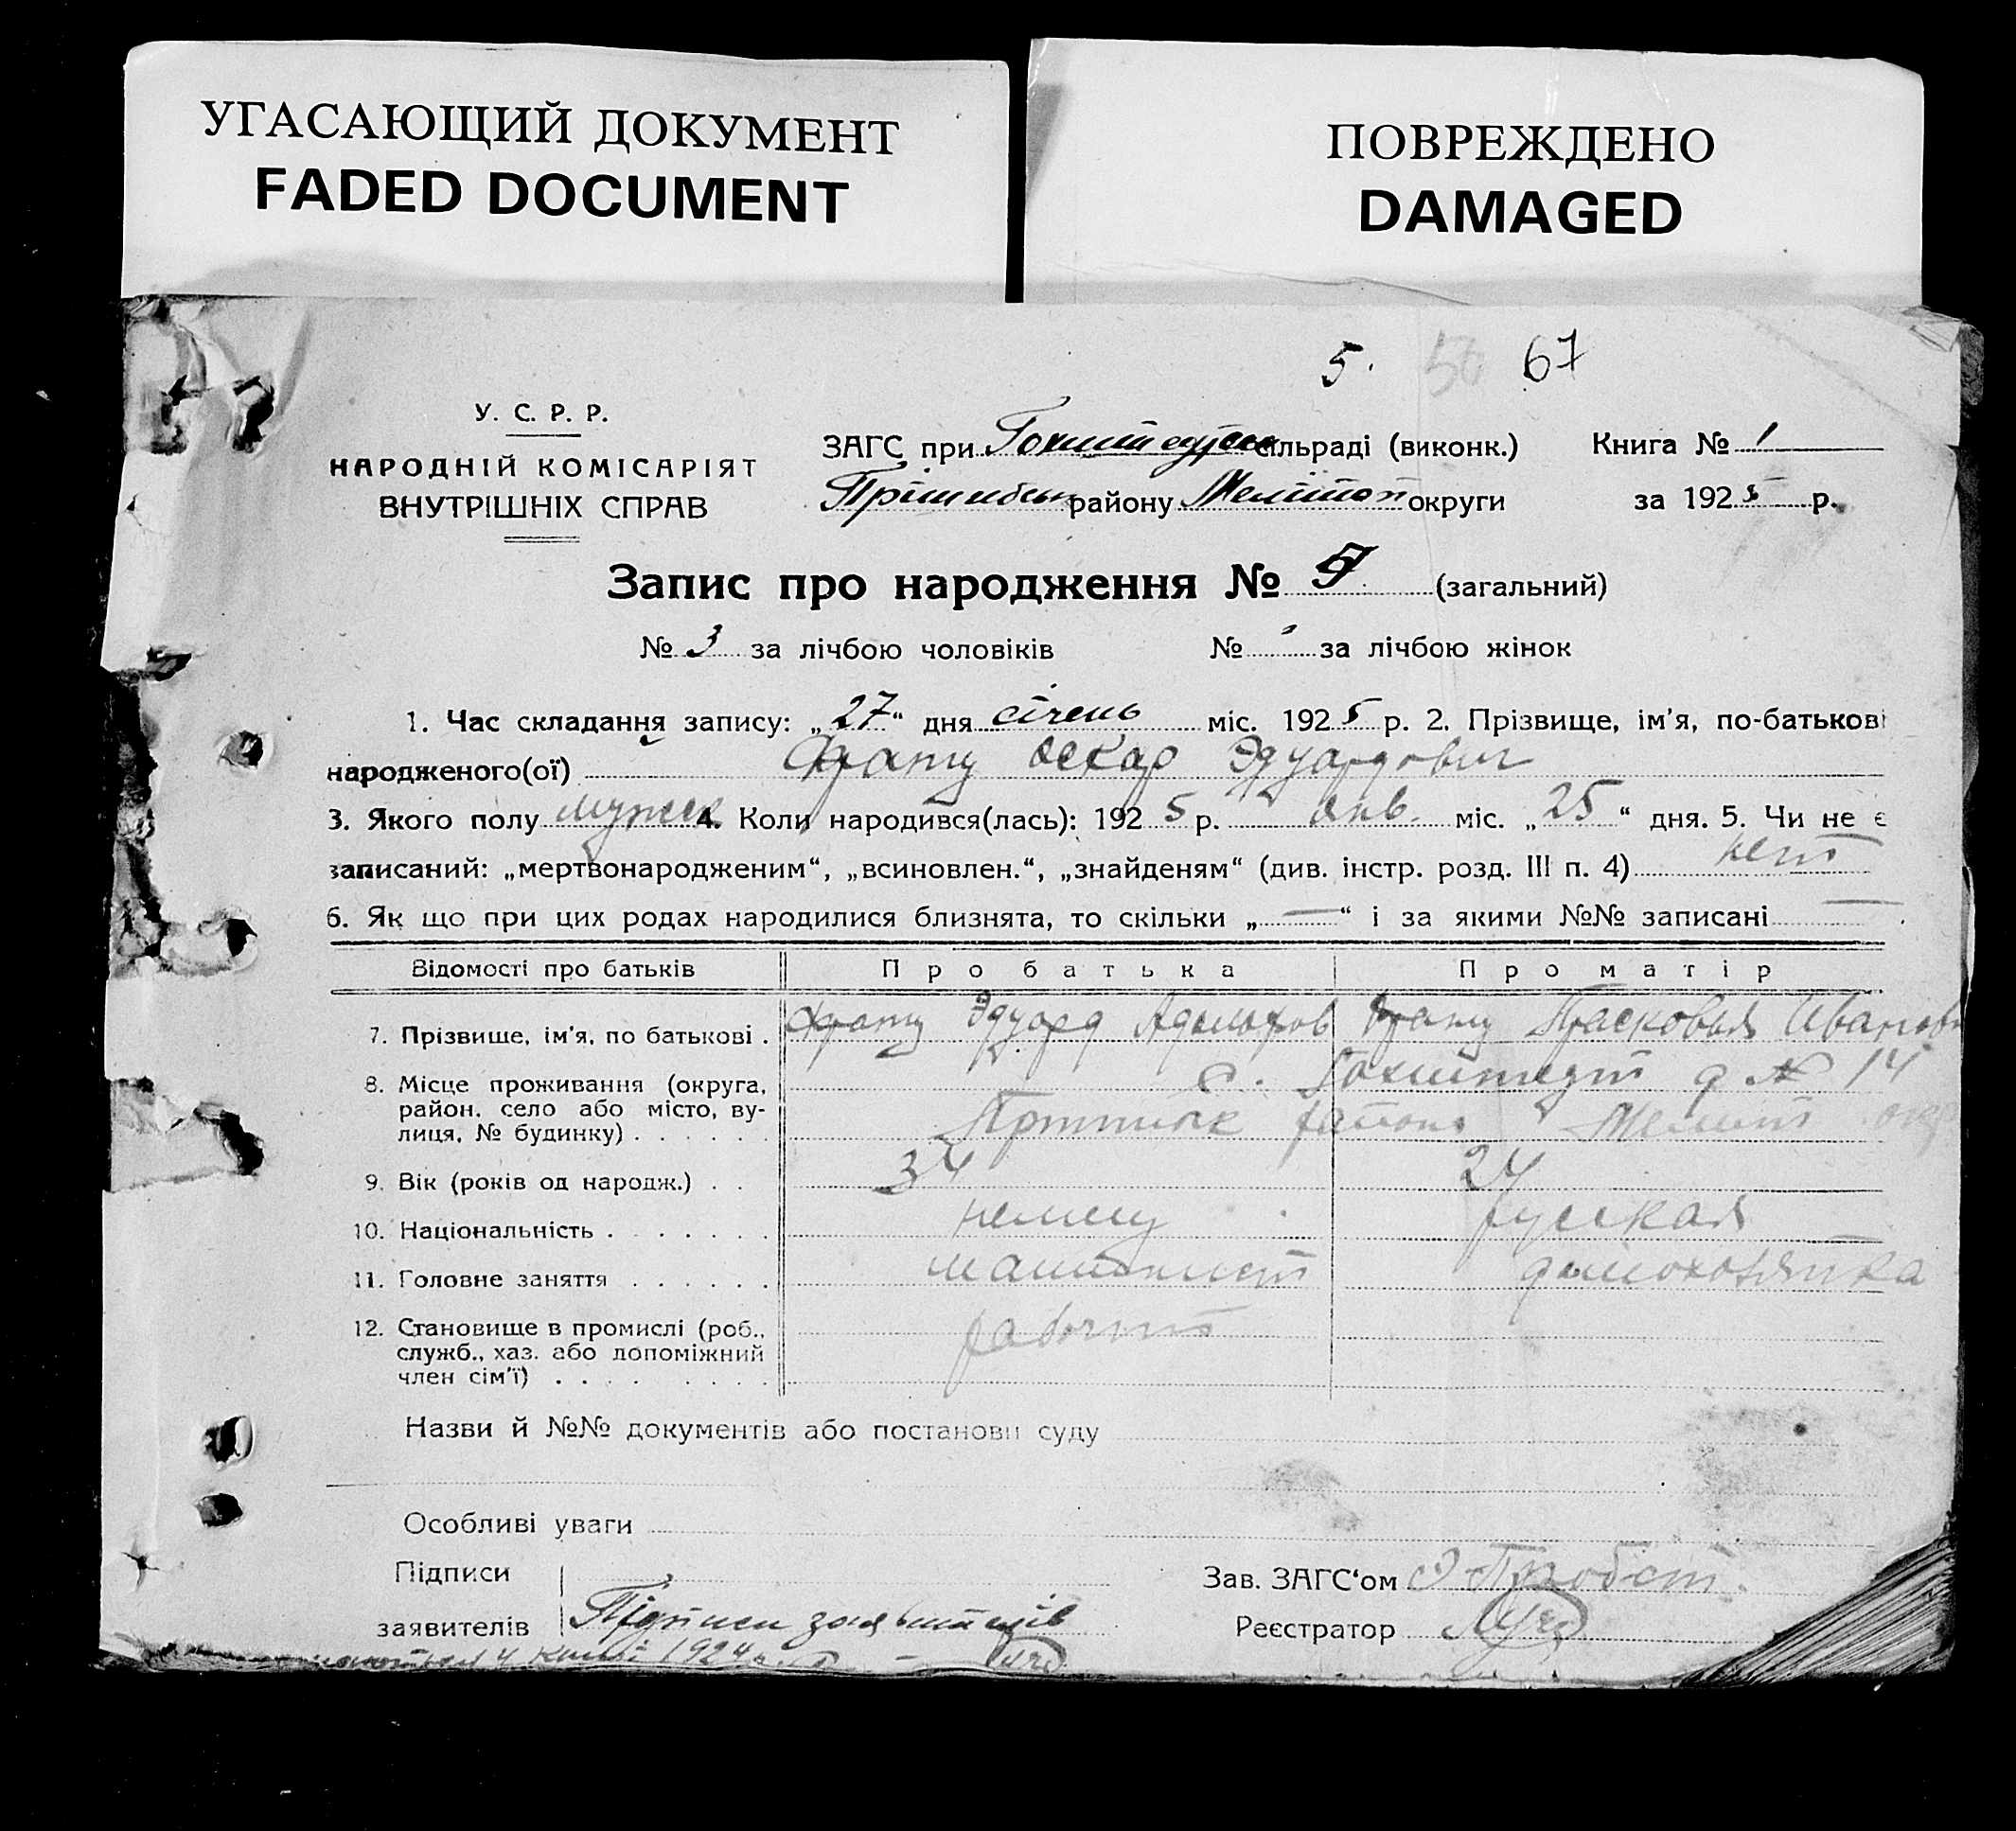 УГАСАЮЩИЙ ДОКУМЕНТ
FADED DOCUMENT
ПОВРЕЖДЕНО
DAMAGED
5. 50 67
У. С. Р. Р.
НАРОДНІЙ КОМІСАРІЯТ
ВНУТРІШНІХ СПРАВ
ЗАГС при Гохштедськ сільраді (виконк.) Книга № 1
Прішибськ району Меліттоп округи за 1925 р.
Запис про народження № 5 (загальний)
№ 3 за лічбою чоловіків № за лічбою жінок
1. Час складання запису: „27“ дня січень міс. 1925 р. 2. Прізвище, ім'я, по-батькові
народженого(ої) Оскар Эдуардович
3. Якого полу мужск 4. Коли народився(лась): 1925 р. янв. міс. „25“ дня. 5. Чи не є
записаний: „мертвонародженим“, „всиновлен.“, „знайденям“ (див. інстр. розд. III п. 4) нет
6. Як що при цих родах народилися близнята, то скільки „—“ і за якими №№ записані —.
Відомості про батьків Про батька Про матір
7. Прізвище, ім'я, по батькові . Эдуард Адольфов Прасковья Иванов
8. Місце проживання (округа, с. Гохштедт д № 14
район, село або місто, ву-
лиця, № будинку) . . . . . . района Мелит окр
9. Вік (років од народж.) . . 34 24
10. Національність . . . . . . . немец русская
11. Головне заняття . . . . . . машинист домохозяйка
12. Становище в промислі (роб., рабочий
служб., хаз. або допоміжний
член сім'ї) . . . . . . . .
Назви й №№ документів або постанови суду
Особливі уваги
Підписи Зав. ЗАГС‘ом Пробст.
заявителів Підписи заявителів Реєстратор
4 1924 р.